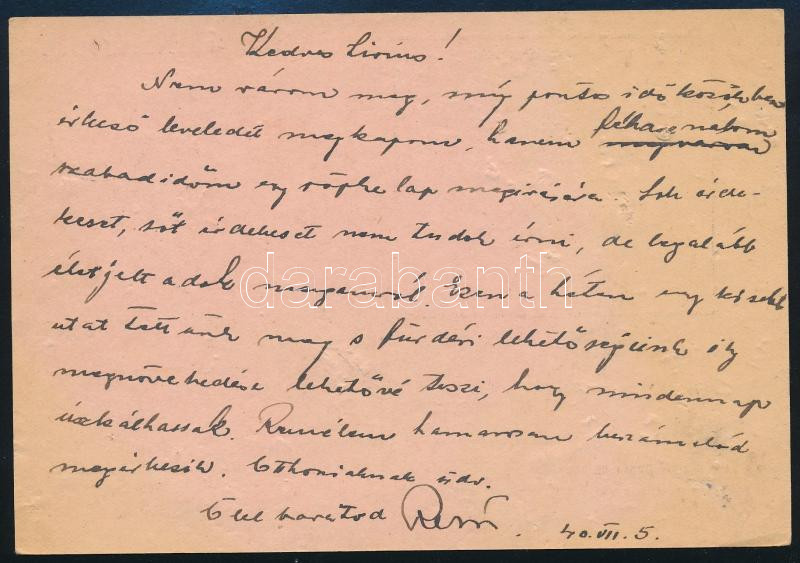 Kedves Lirius!
Nem várom meg, míg pontos időközökben
érkező leveledet megkapom, hanem felhasználom
megvárva
szabadidőm egy röpke lap megírására. Sok érde-
keset, sőt érdekeset nem tudok írni, de legalább
életjelt adok magamról. Ezen a héten egy kisebb
utat tettünk meg s fürdési lehetőségeink így
megnövekedése lehetővé teszi, hogy mindennap
úszkálhassak. Remélem hamarosan beszámolód
megérkezik. Otthoniaknak üdv.
Ölel barátod Rezső.
40.VII.5.
darabanth